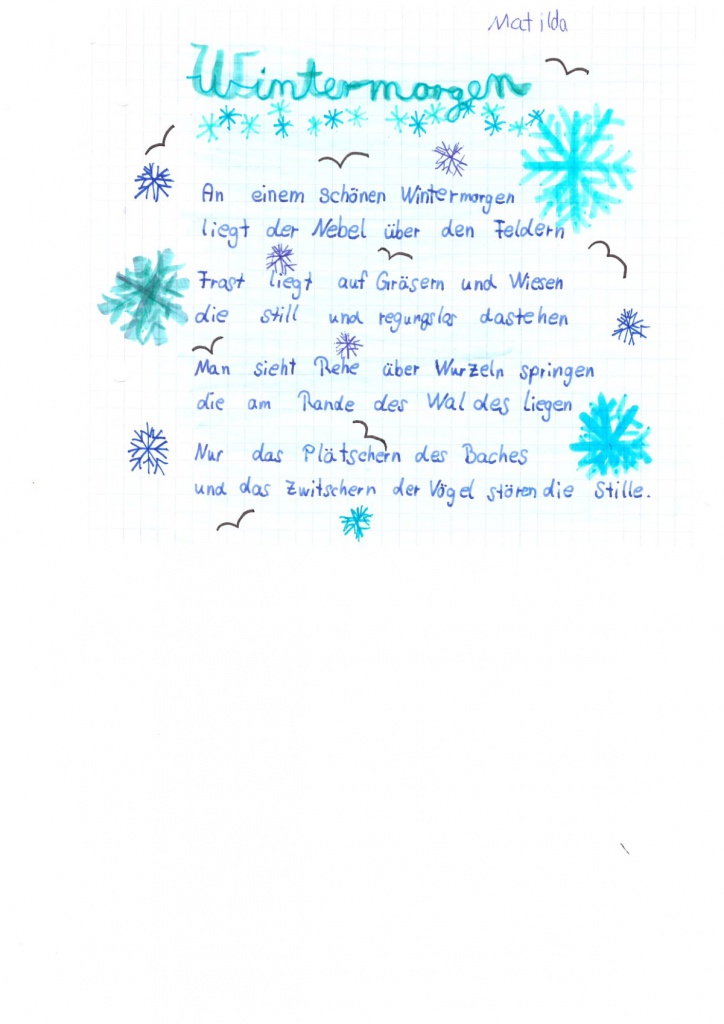 Matilda
Wintermorgen
An einem schönen Wintermorgen
liegt der Nebel über den Feldern
Frost liegt auf Gräsern und Wiesen
die still und regungslos dastehen
Man sieht Rehe über Wurzeln springen
die am Rande des Waldes Liegen
Nur das Plätschern des Baches
und das Zwitschern der Vögel stören die Stille.